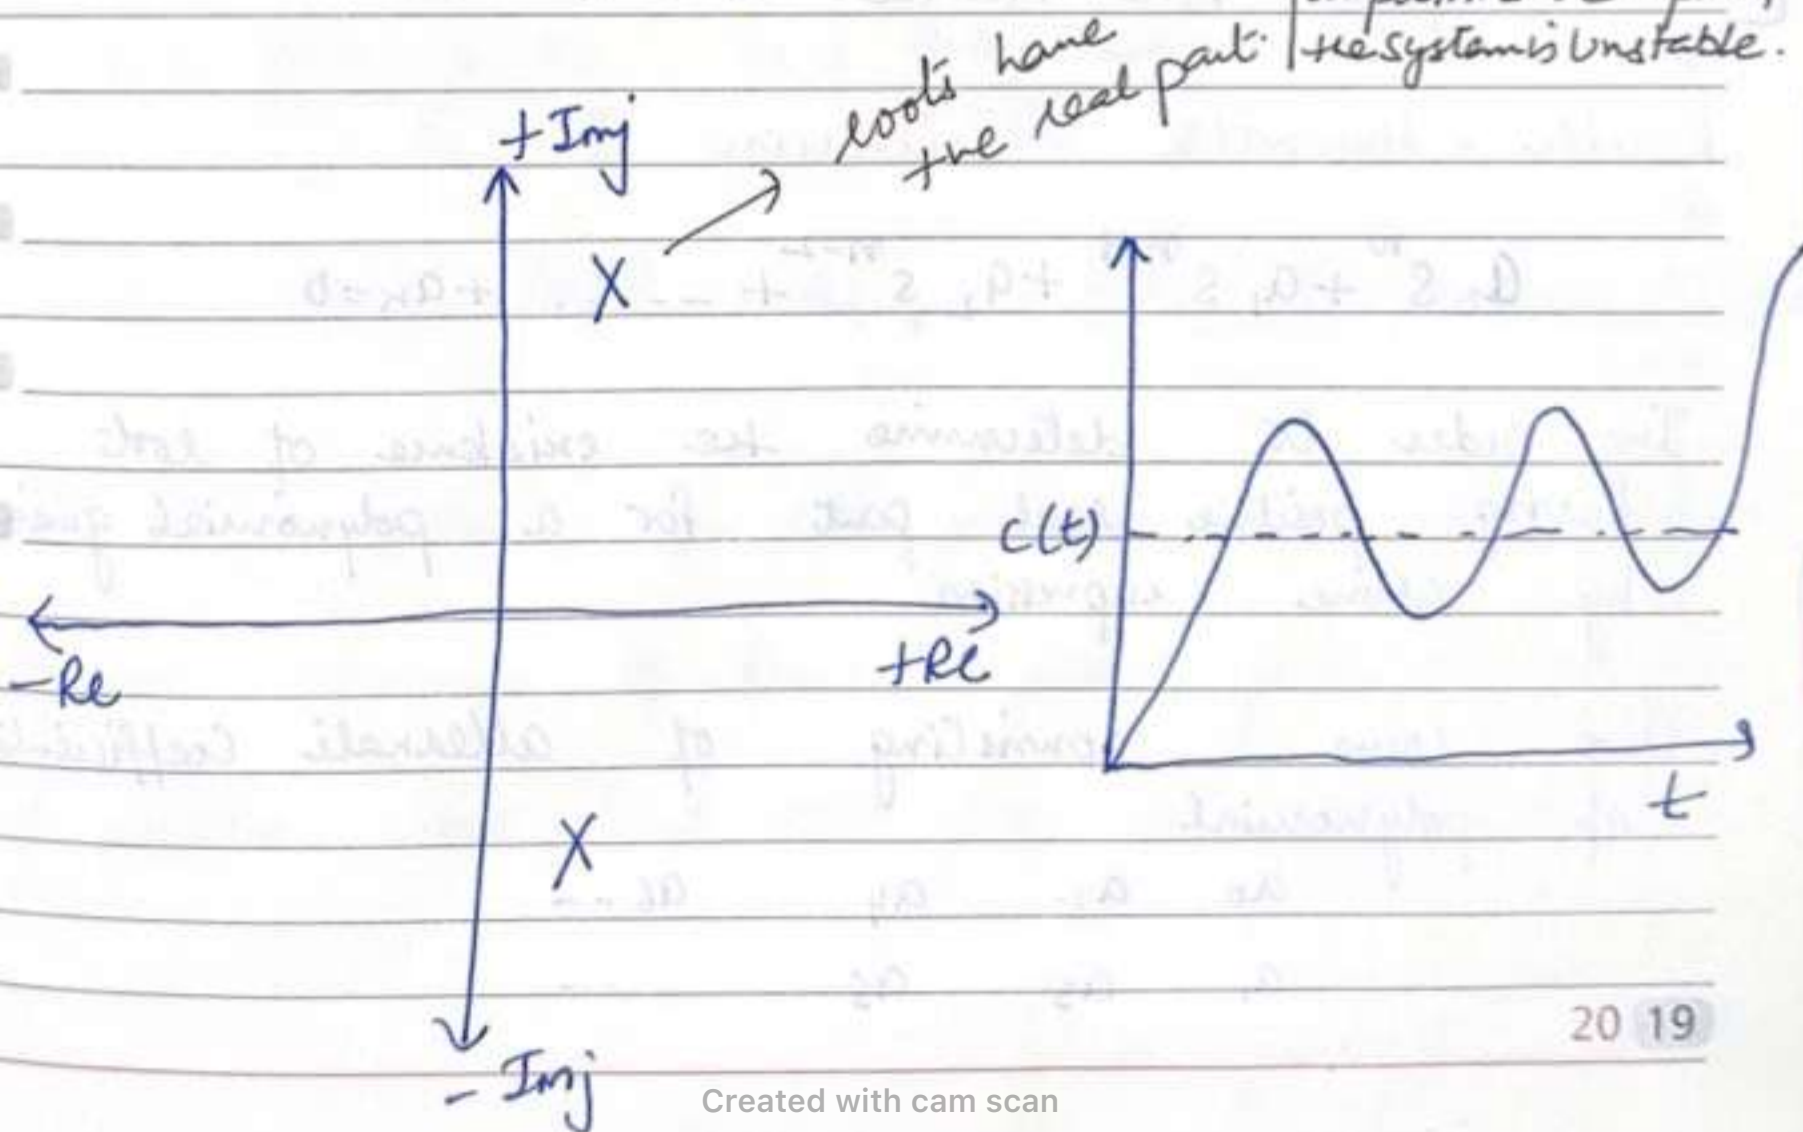 roots have
+ve real part
the system is Unstable.
+Imj
X
c(t)
-Re
+Re
t
X
- Imj
20 19
Created with cam scan